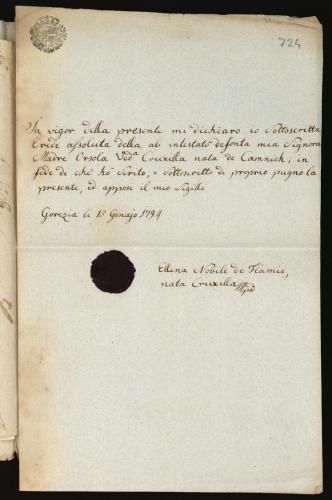 724
In vigor della presente mi dichiaro io Sottoscritta
Erede assoluta della ab intestato defonta mia Signora
Madre Orsola Ved.a Cruxilla nata de Camnich, in
fede di che ho scrito, e sottoscritto di proprio pugno la
presente, ed apposi il mio Sigillo
Gorizia li 13 Genajo 1794
Ellena Nobile de Fiamio,
nata Cruxilla